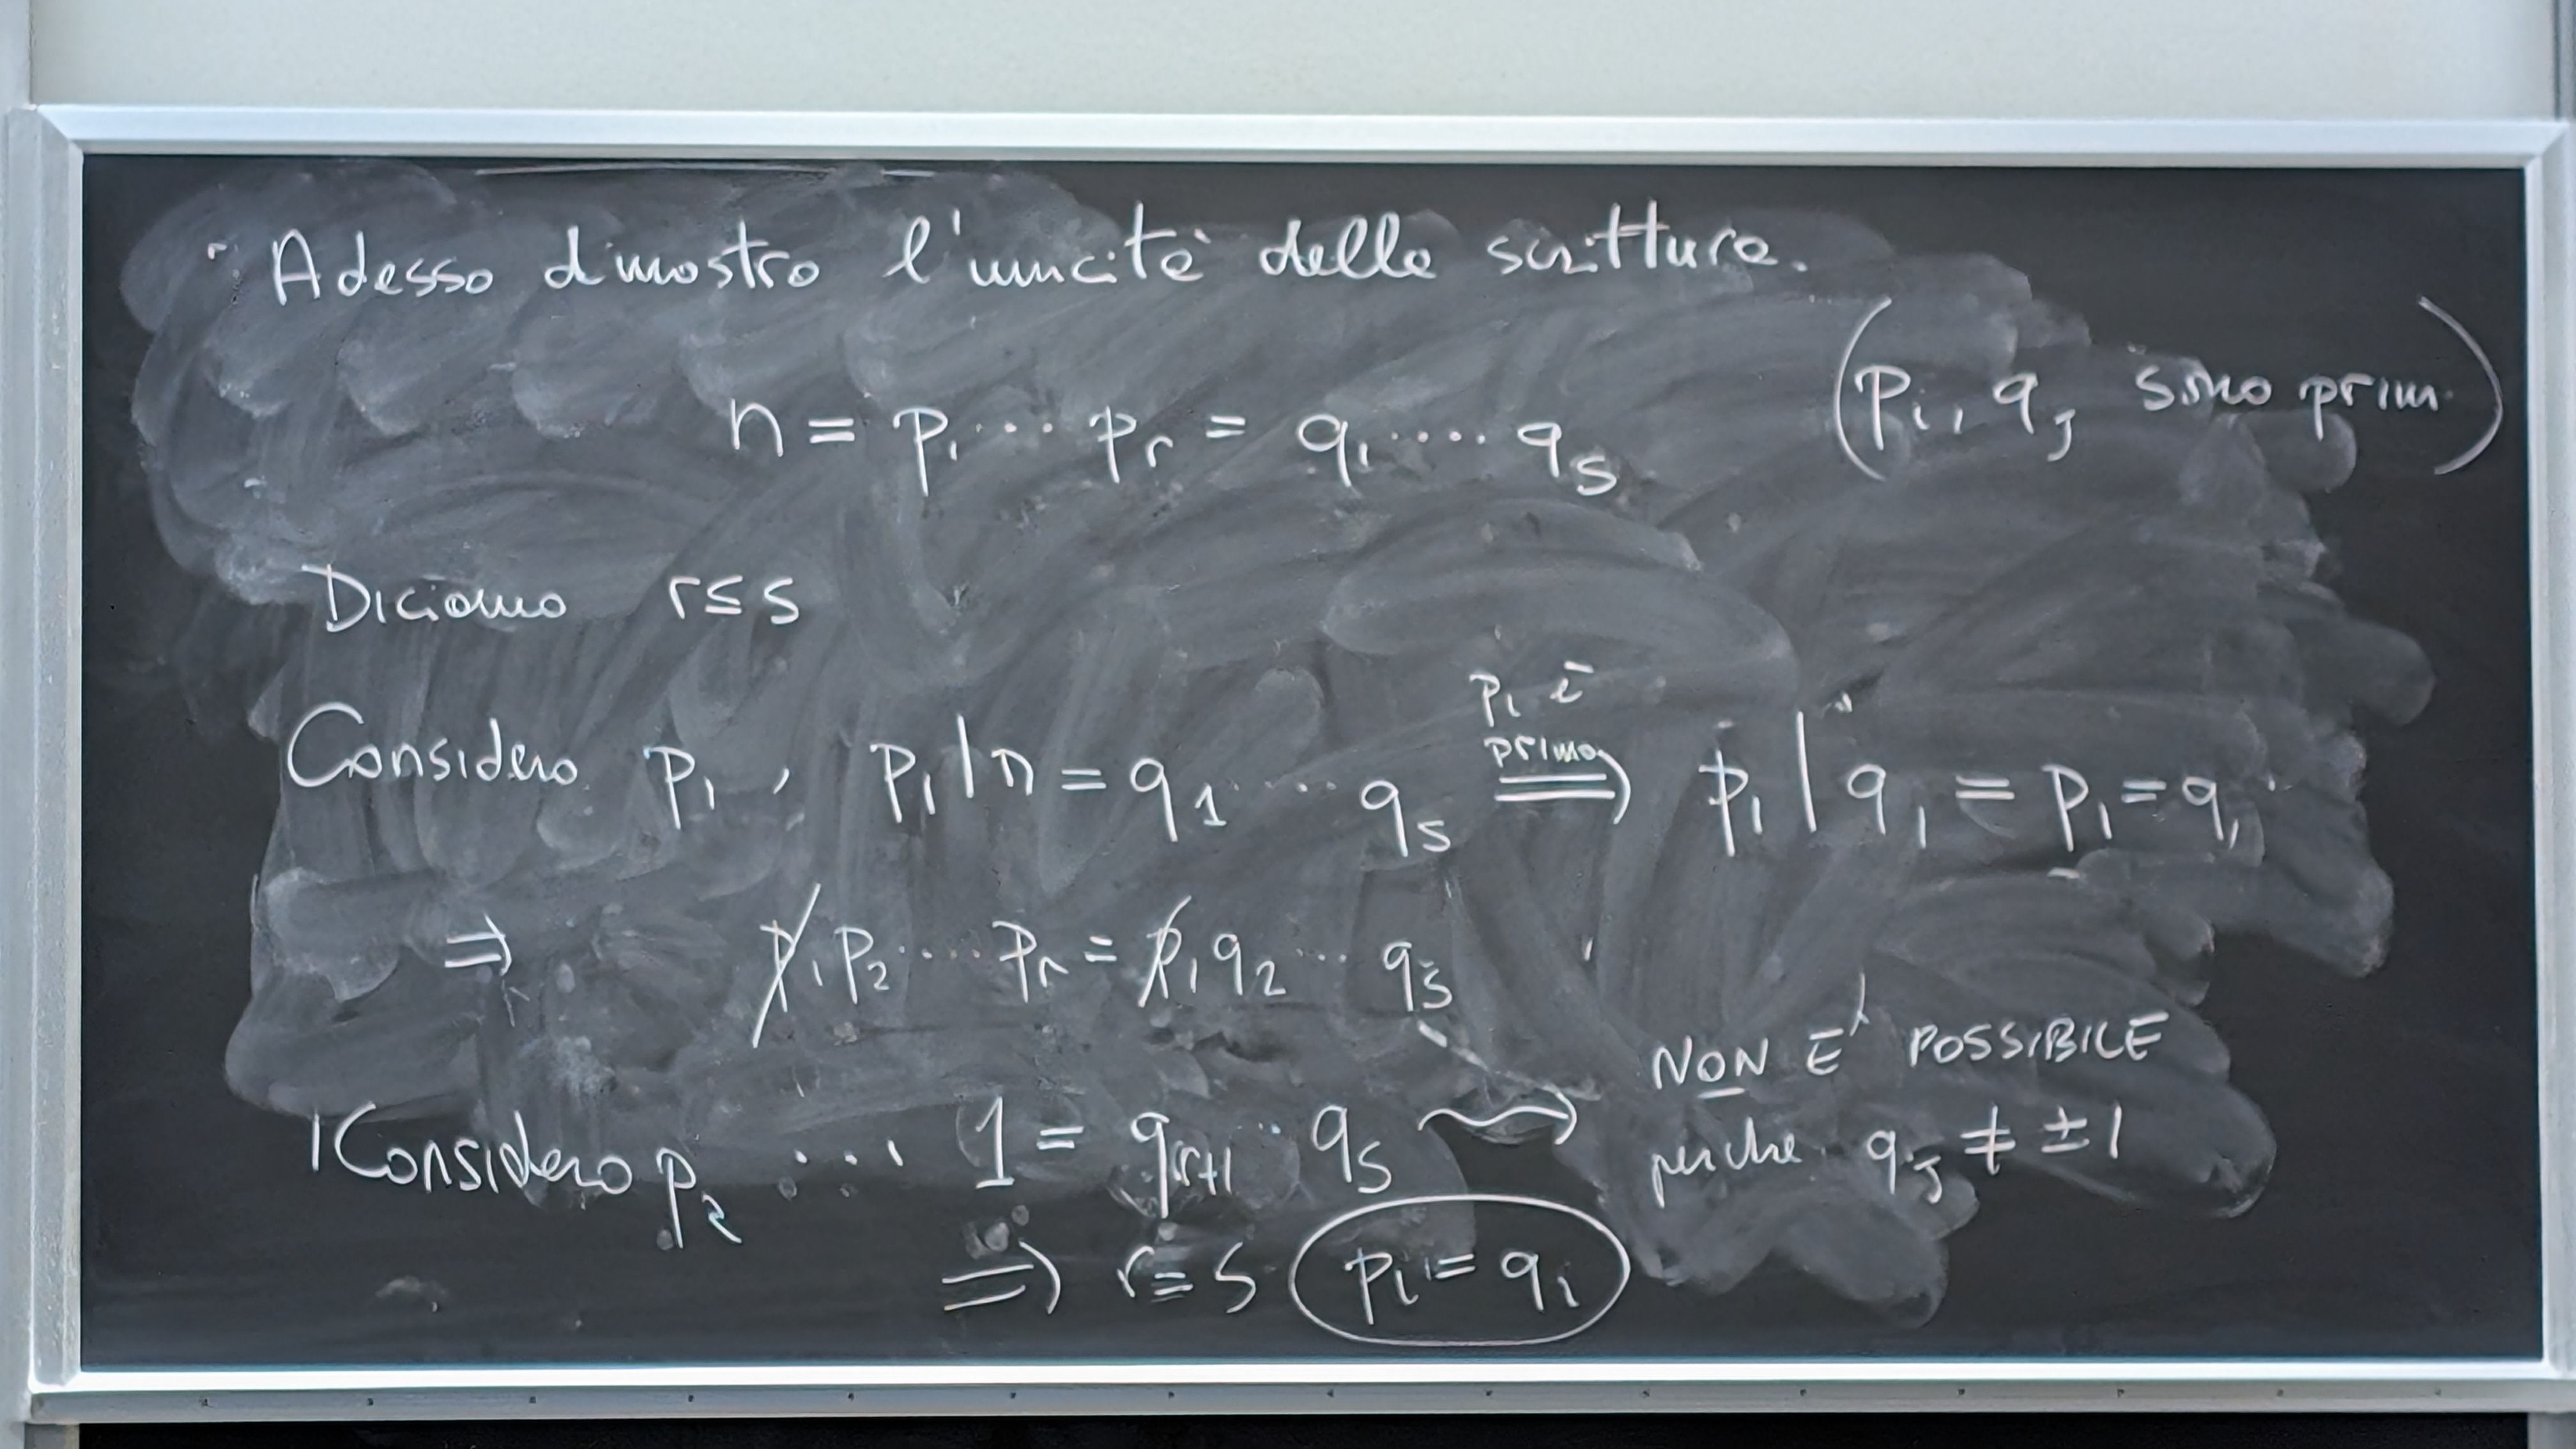 Adesso dimostro l'unicità della scrittura.
n = p₁ ···· pᵣ = q₁ ···· qₛ (pᵢ, qⱼ sono primi)
Diciamo r ≤ s
Considero p₁, p₁ | n = q₁ ··· qₛ ⟹ p₁ | q₁ = p₁ = q₁
p₁ è
primo
⇒ p̸₁ p₂ ···· pᵣ = p̸₁ q₂ ··· qₛ
Considero p₂ ··· 1 = qᵣ₊₁ ·· qₛ ⇝ NON E' POSSIBILE
perché qⱼ ≠ ±1
⇒ r = s pᵢ = qᵢ